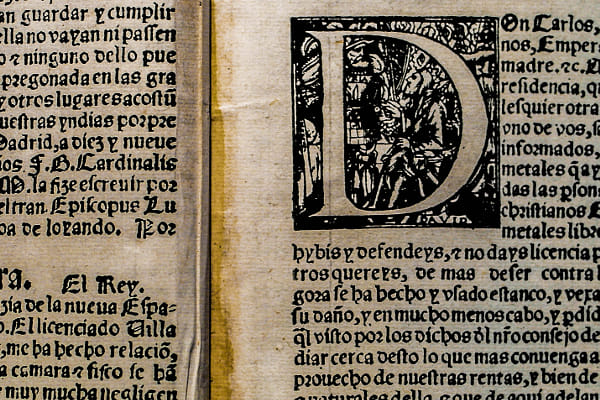 an guardar y cumplir
ella no vayan ni passen
o z ninguno dello pue
pregonada en las gra
y otros lugares acostũ
uestras yndias por pre
Madrid, a diez y nueue
ios F. G. Cardinalis
M. la fize escreuir por
eltran Episcopus Lu
oa de loyando. Por
El Rey.
zia de la nueua Espa-
o. El licenciado Uilla
, me ha hecho relaciõ,
a camara z fisco se hã
muy mucha negligen
DOn Carlos,
nos, Emper
madre. zc.
residencia, q
lesquier otra
vno de vos, s
informados,
metales q̃ ay
das las pson
christianos E
metales libre
hybis y defendeys, z no days licencia p
tros quereys, de mas de ser contra l
gora se ha hecho y vsado estanco, y vexa
su daño, y en mucho menos cabo, y pdid
q̃l visto por los dichos ðl nro consejo de
diar cerca desto lo que mas conuenga a
prouecho de nuestras rentas, y bien de
z naturales della, z que de aqui adelan
DAVID